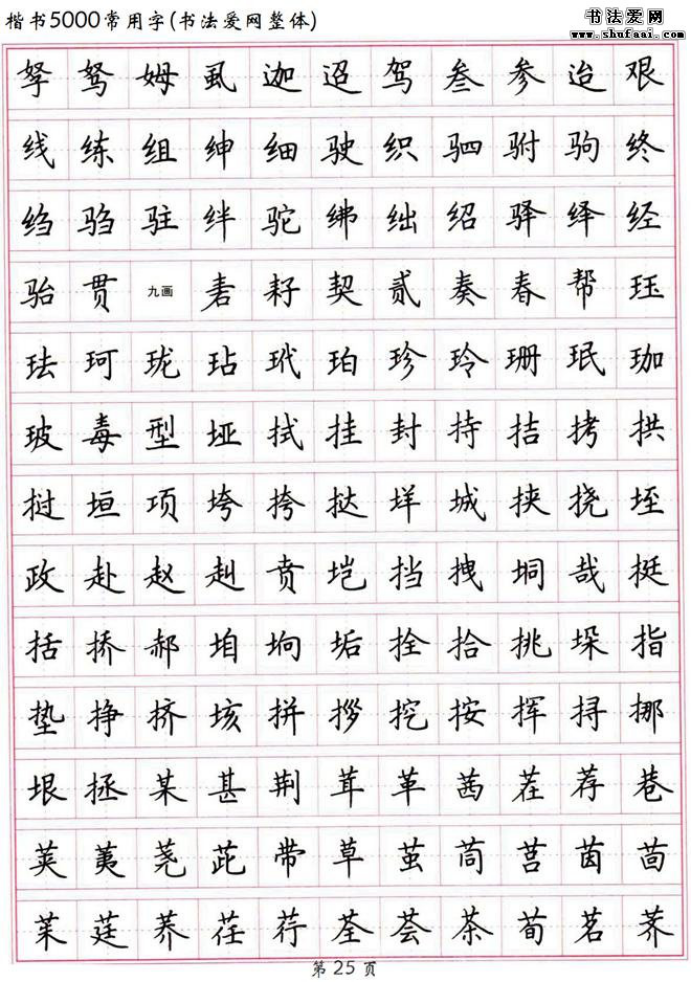 楷书5000常用字(书法爱网整体)
书法爱网
www.shufaai.com
孥 驽 姆 虱 迦 迢 驾 叁 参 迨 艰
线 练 组 绅 细 驶 织 驷 驸 驹 终
绉 驺 驻 绊 驼 绋 绌 绍 驿 绎 经
骀 贯 九画 砉 耔 契 贰 奏 春 帮 珏
珐 珂 珑 玷 玳 珀 珍 玲 珊 珉 珈
玻 毒 型 垭 拭 挂 封 持 拮 拷 拱
挝 垣 项 垮 挎 挞 垟 城 挟 挠 垤
政 赴 赵 赳 贲 垲 挡 拽 垌 哉 挺
括 挢 郝 垍 垧 垢 拴 拾 挑 垛 指
垫 挣 挤 垓 拼 拶 挖 按 挥 挦 挪
垠 拯 某 甚 荆 茸 革 茜 茬 荐 巷
荚 荑 荛 茈 带 草 茧 茼 莒 茵 茴
茱 莛 荞 茌 荇 荃 荟 茶 荀 茗 荠
第 25 页